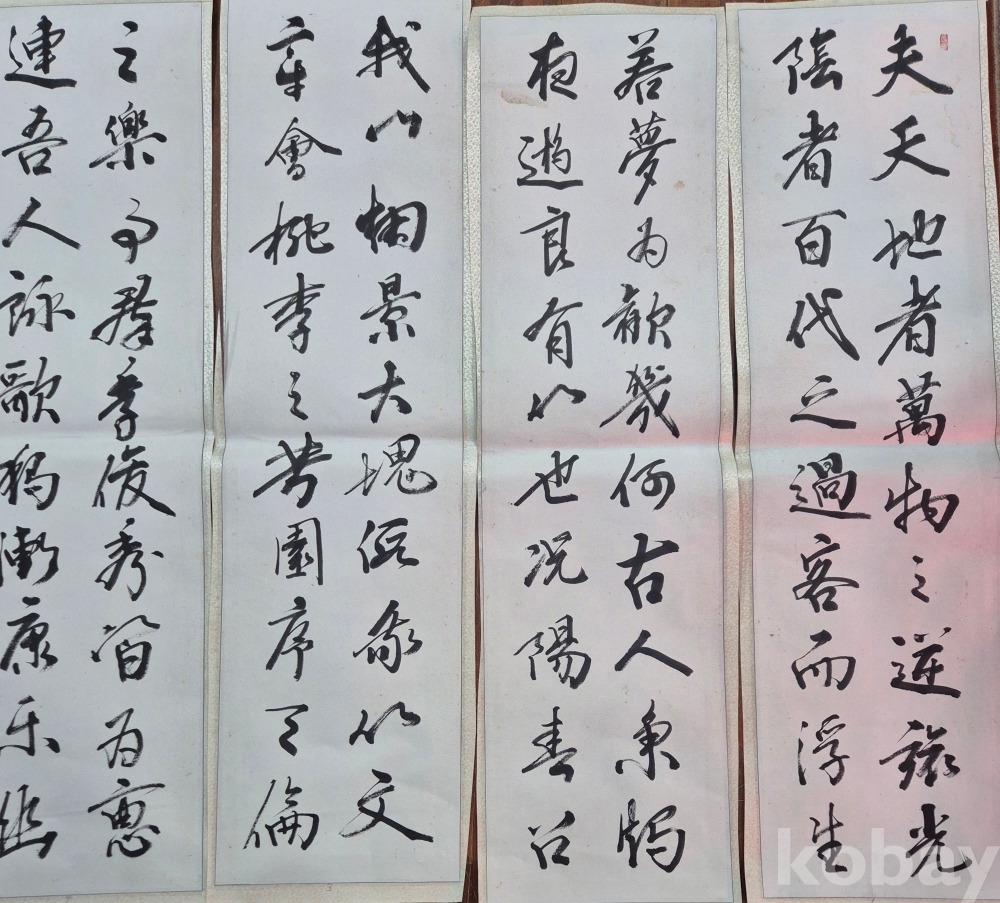 夫天地者萬物之逆旅光
陰者百代之過客而浮生
若夢為歡幾何古人秉燭
夜遊良有以也況陽春召
我以烟景大塊假我以文
章會桃李之芳園序天倫
之樂事群季俊秀皆為惠
連吾人詠歌獨慚康乐幽
kobay